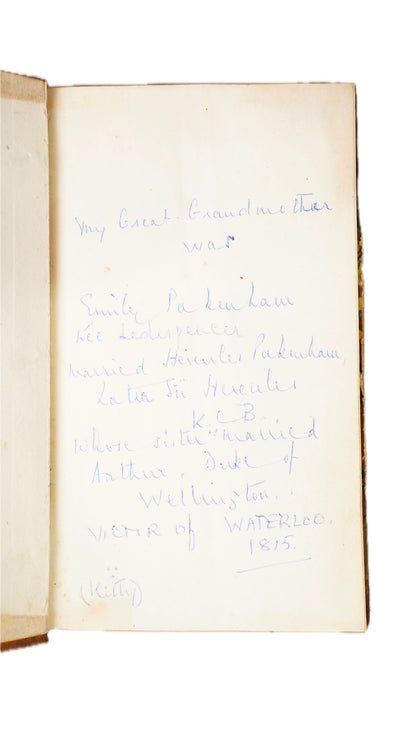 My Great. Grandmother
was
Emily Pakenham
née Ledespencer
married Hercules Pakenham,
Later Sir Hercules
K.C.B.
whose sister ∵ married
Arthur. Duke of
Wellington.
VICTOR of WATERLOO.
1815.
∵
(Kitty)